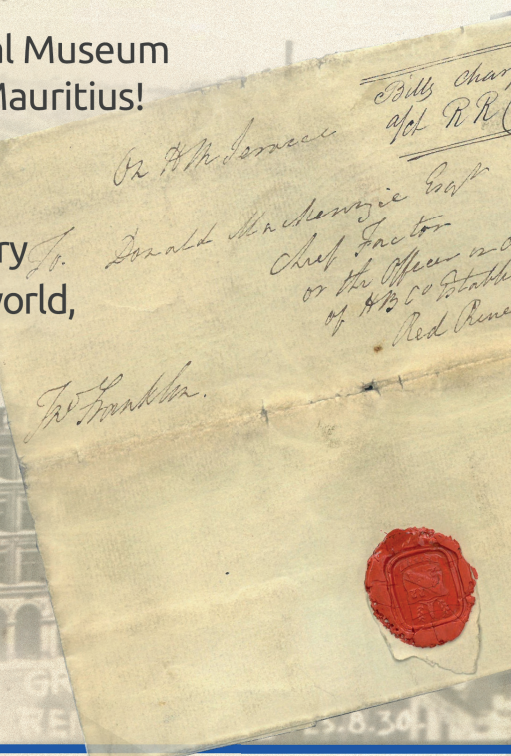 al Museum
Mauritius!
ry
world,
Bills char
a/ct R R (
On HM Service
To. Donald MacKenzie Esqr
Chief Factor
or the Officer in
of HB Co Establ
Red River
Jno Franklin.
GR
RE
25.8.30